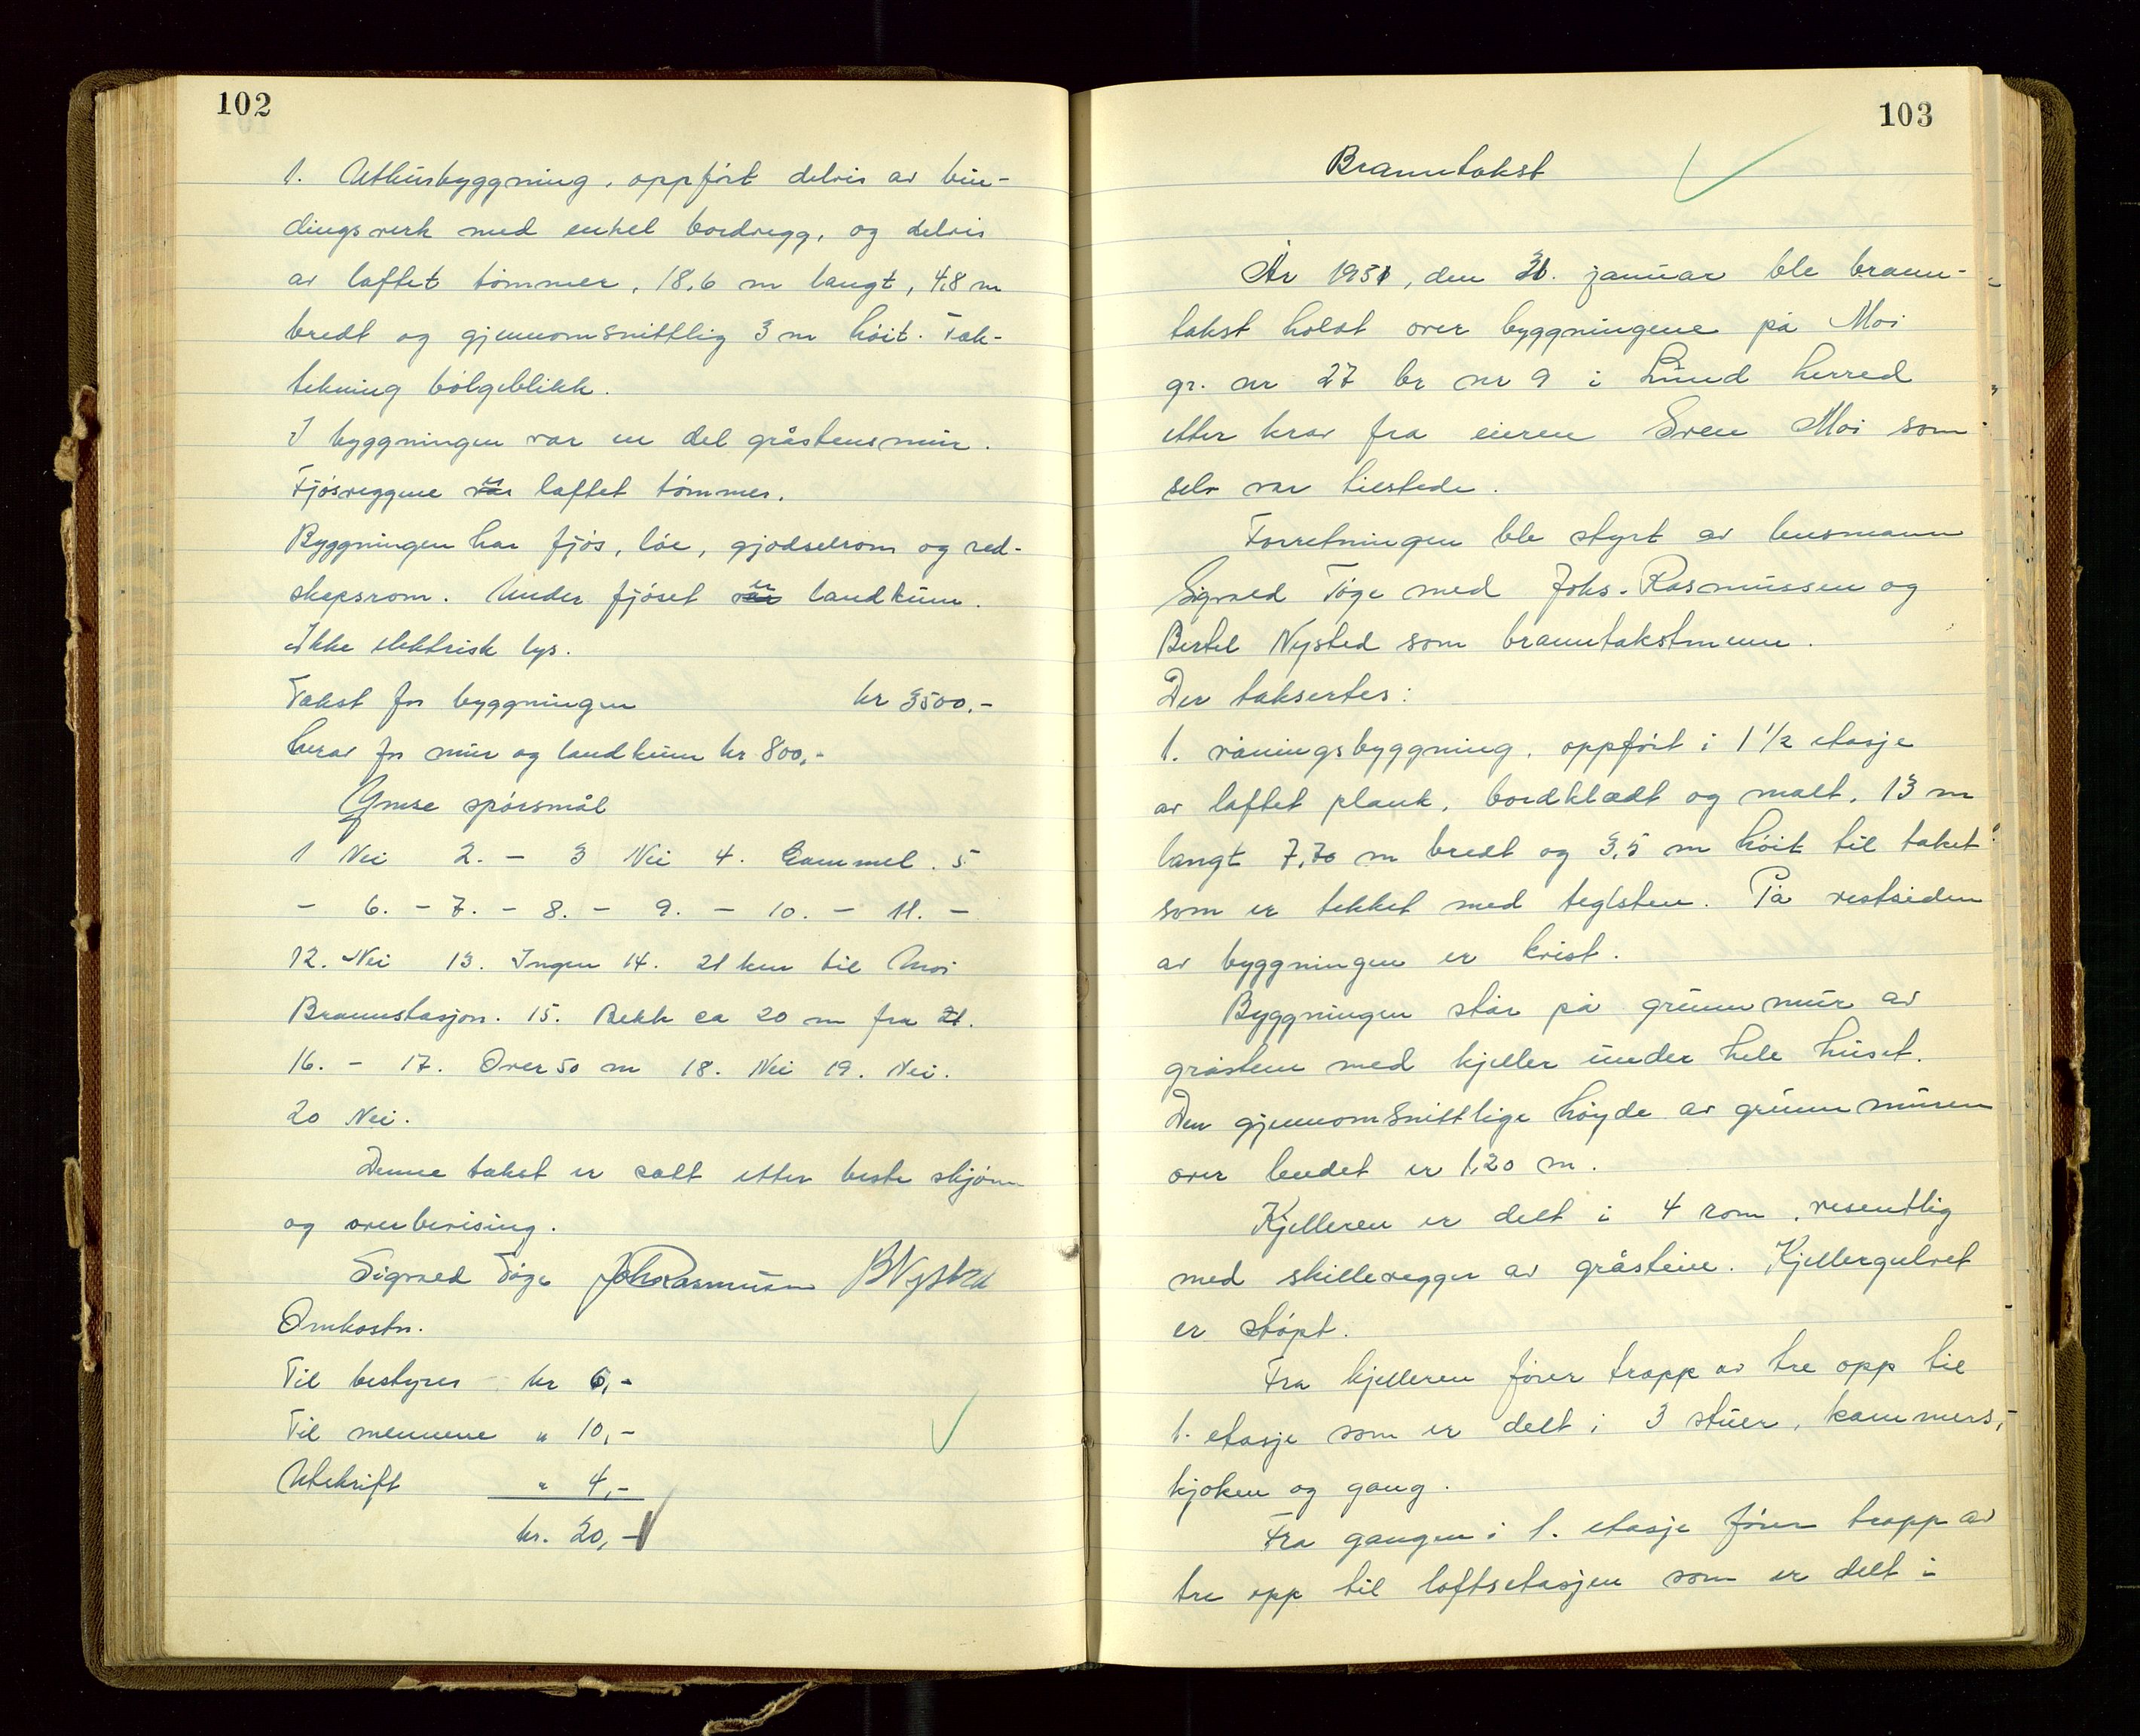 102
1. Uthusbyggning, oppført delvis av bin-
dingsverk med enkel bordvegg, og delvis
av laftet tømmer, 18,6 m langt, 4,8 m
bredt og gjennomsnittlig 3 m høit. Tak-
tekning bølgeblikk.
I byggningen var en del gråstensmur.
Fjøsveggene er laftet tømmer.
Byggningen har fjøs, løe, gjødselrom og red-
skapsrom. Under fjøset er landkum.
Ikke elektrisk lys.
Takst for byggningen kr 3500,-
herav for mur og landkum kr 800,-
Ymse spørsmål
1 Nei 2. - 3 Nei 4. Gammel. 5
- 6. - 7. - 8. - 9. - 10. - 11. -
12. Nei 13. Ingen 14. 21 km til Moi
Brannstasjon. 15. Bekk ca 20 m fra 21.
16. - 17. Over 50 m 18. Nei 19. Nei.
20 Nei.
Denne takst er satt etter beste skjønn
og overbevising.
Sigvald Tøge Joh Rasmussen B Nysted
Omkostn.
Til bestyrer kr 6,-
Til mennene " 10,-
Utskrift " 4,-
kr. 20,-
103
Branntakst
År 1951, den 31. januar ble brann-
takst holdt over byggningene på Moi
gr. nr 27 br nr 9 i Lund herred
etter krav fra eieren Sven Moi som
selv var tilstede.
Forretningen ble styrt av lensmann
Sigvald Tøge med Johs. Rasmussen og
Bertel Nysted som branntakstmenn.
Der taksertes:
1. våningsbyggning, oppført i 1 1/2 etasje
av laftet plank, bordklædt og malt, 13 m
langt 7,70 m bredt og 3,5 m høit til taket
som er tekket med teglsten. På vestsiden
av byggningen er kvist.
Byggningen står på grunnmur av
gråsten med kjeller under hele huset.
Den gjennomsnittlige høyde av grunnmuren
over lendet er 1,20 m.
Kjelleren er delt i 4 rom, vesentlig
med skillevegger av gråsteine. Kjellergulvet
er støpt.
Fra kjelleren fører trapp av tre opp til
1. etasje som er delt i 3 stuer, kammers,
kjøken og gang.
Fra gangen i 1. etasje fører trapp av
tre opp til loftsetasjen som er delt i